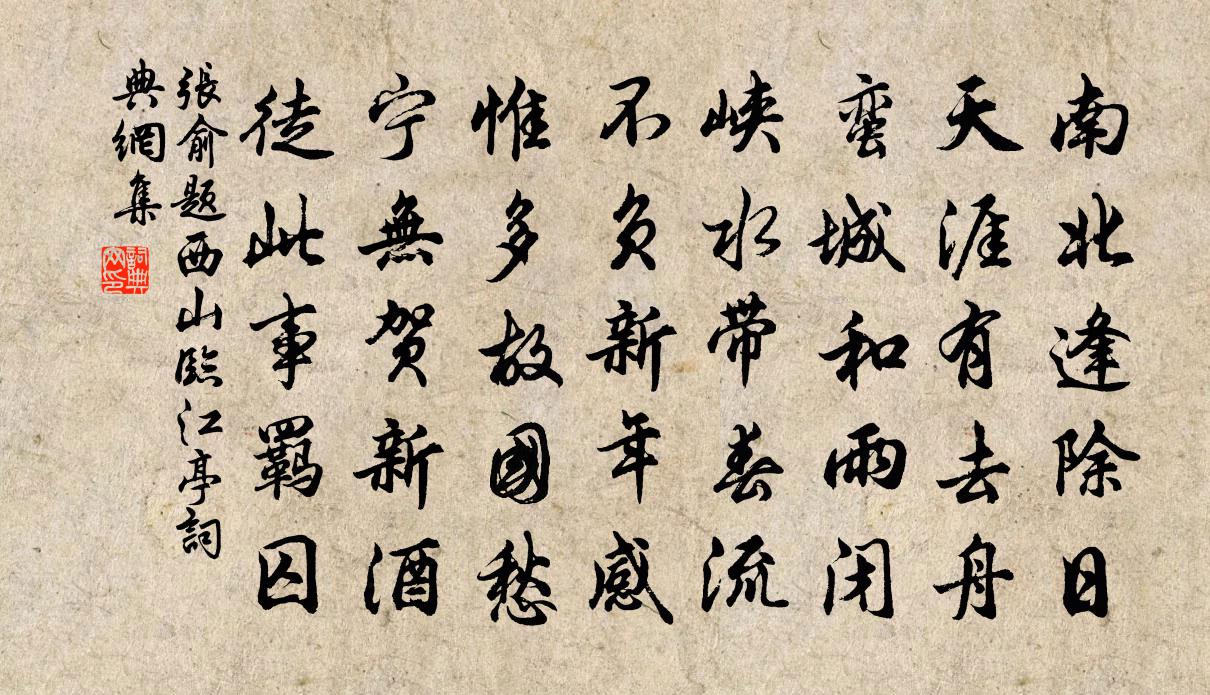 南北逢除日
天涯有去舟
蛮城和雨闭
峡水带春流
不负新年感
惟多故國愁
宁無贺新酒
徒此事羈囚
張俞題西山臨江亭詞
典網集
詞典